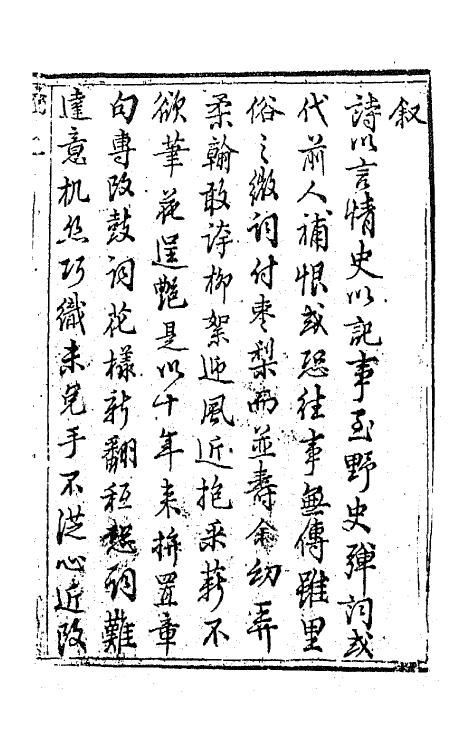 叙
詩以言情史以記事至野史彈詞或
代前人補恨或恐往事無傳雖里
俗之微詞付棗梨而並壽余幼弄
柔翰敢誇柳絮迎風近抱采薪不
欲筆花逞艷是以十年来摒置章
句專改鼓詞花樣新翻秖愁詞難
達意机絲巧織未免手不從心近改